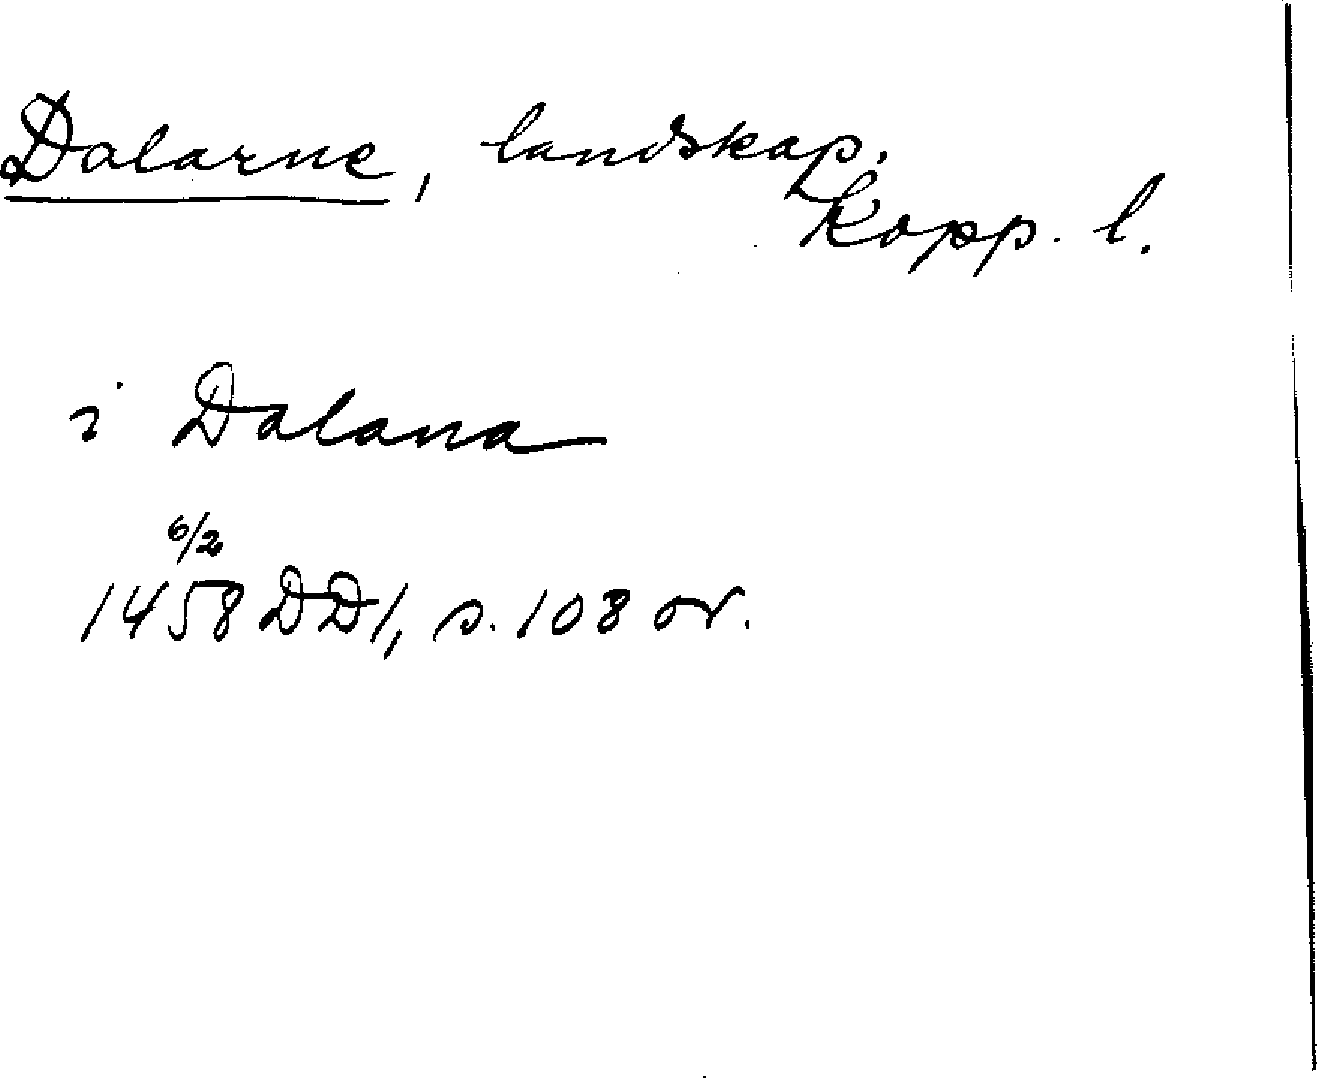 Dalarne, landskap.
Kopp. l.
i Dalana
6/2
1458 DD1, s. 108 or.